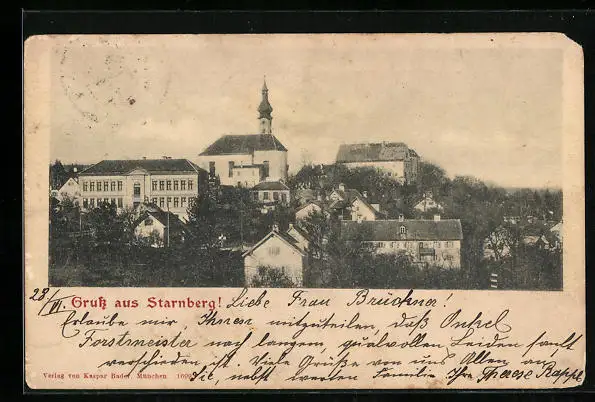 28/VI. Gruß aus Starnberg! Liebe Frau Brückner!
Erlaube mir, Ihnen mitzuteilen, daß Onkel
Forstmeister nach langem qualvollen Leiden sanft
verschieden ist. Viele Grüße von uns Allen an
Verlag von Kaspar Bader, München Sie, nebst werten Familie Ihre Therese Kappl